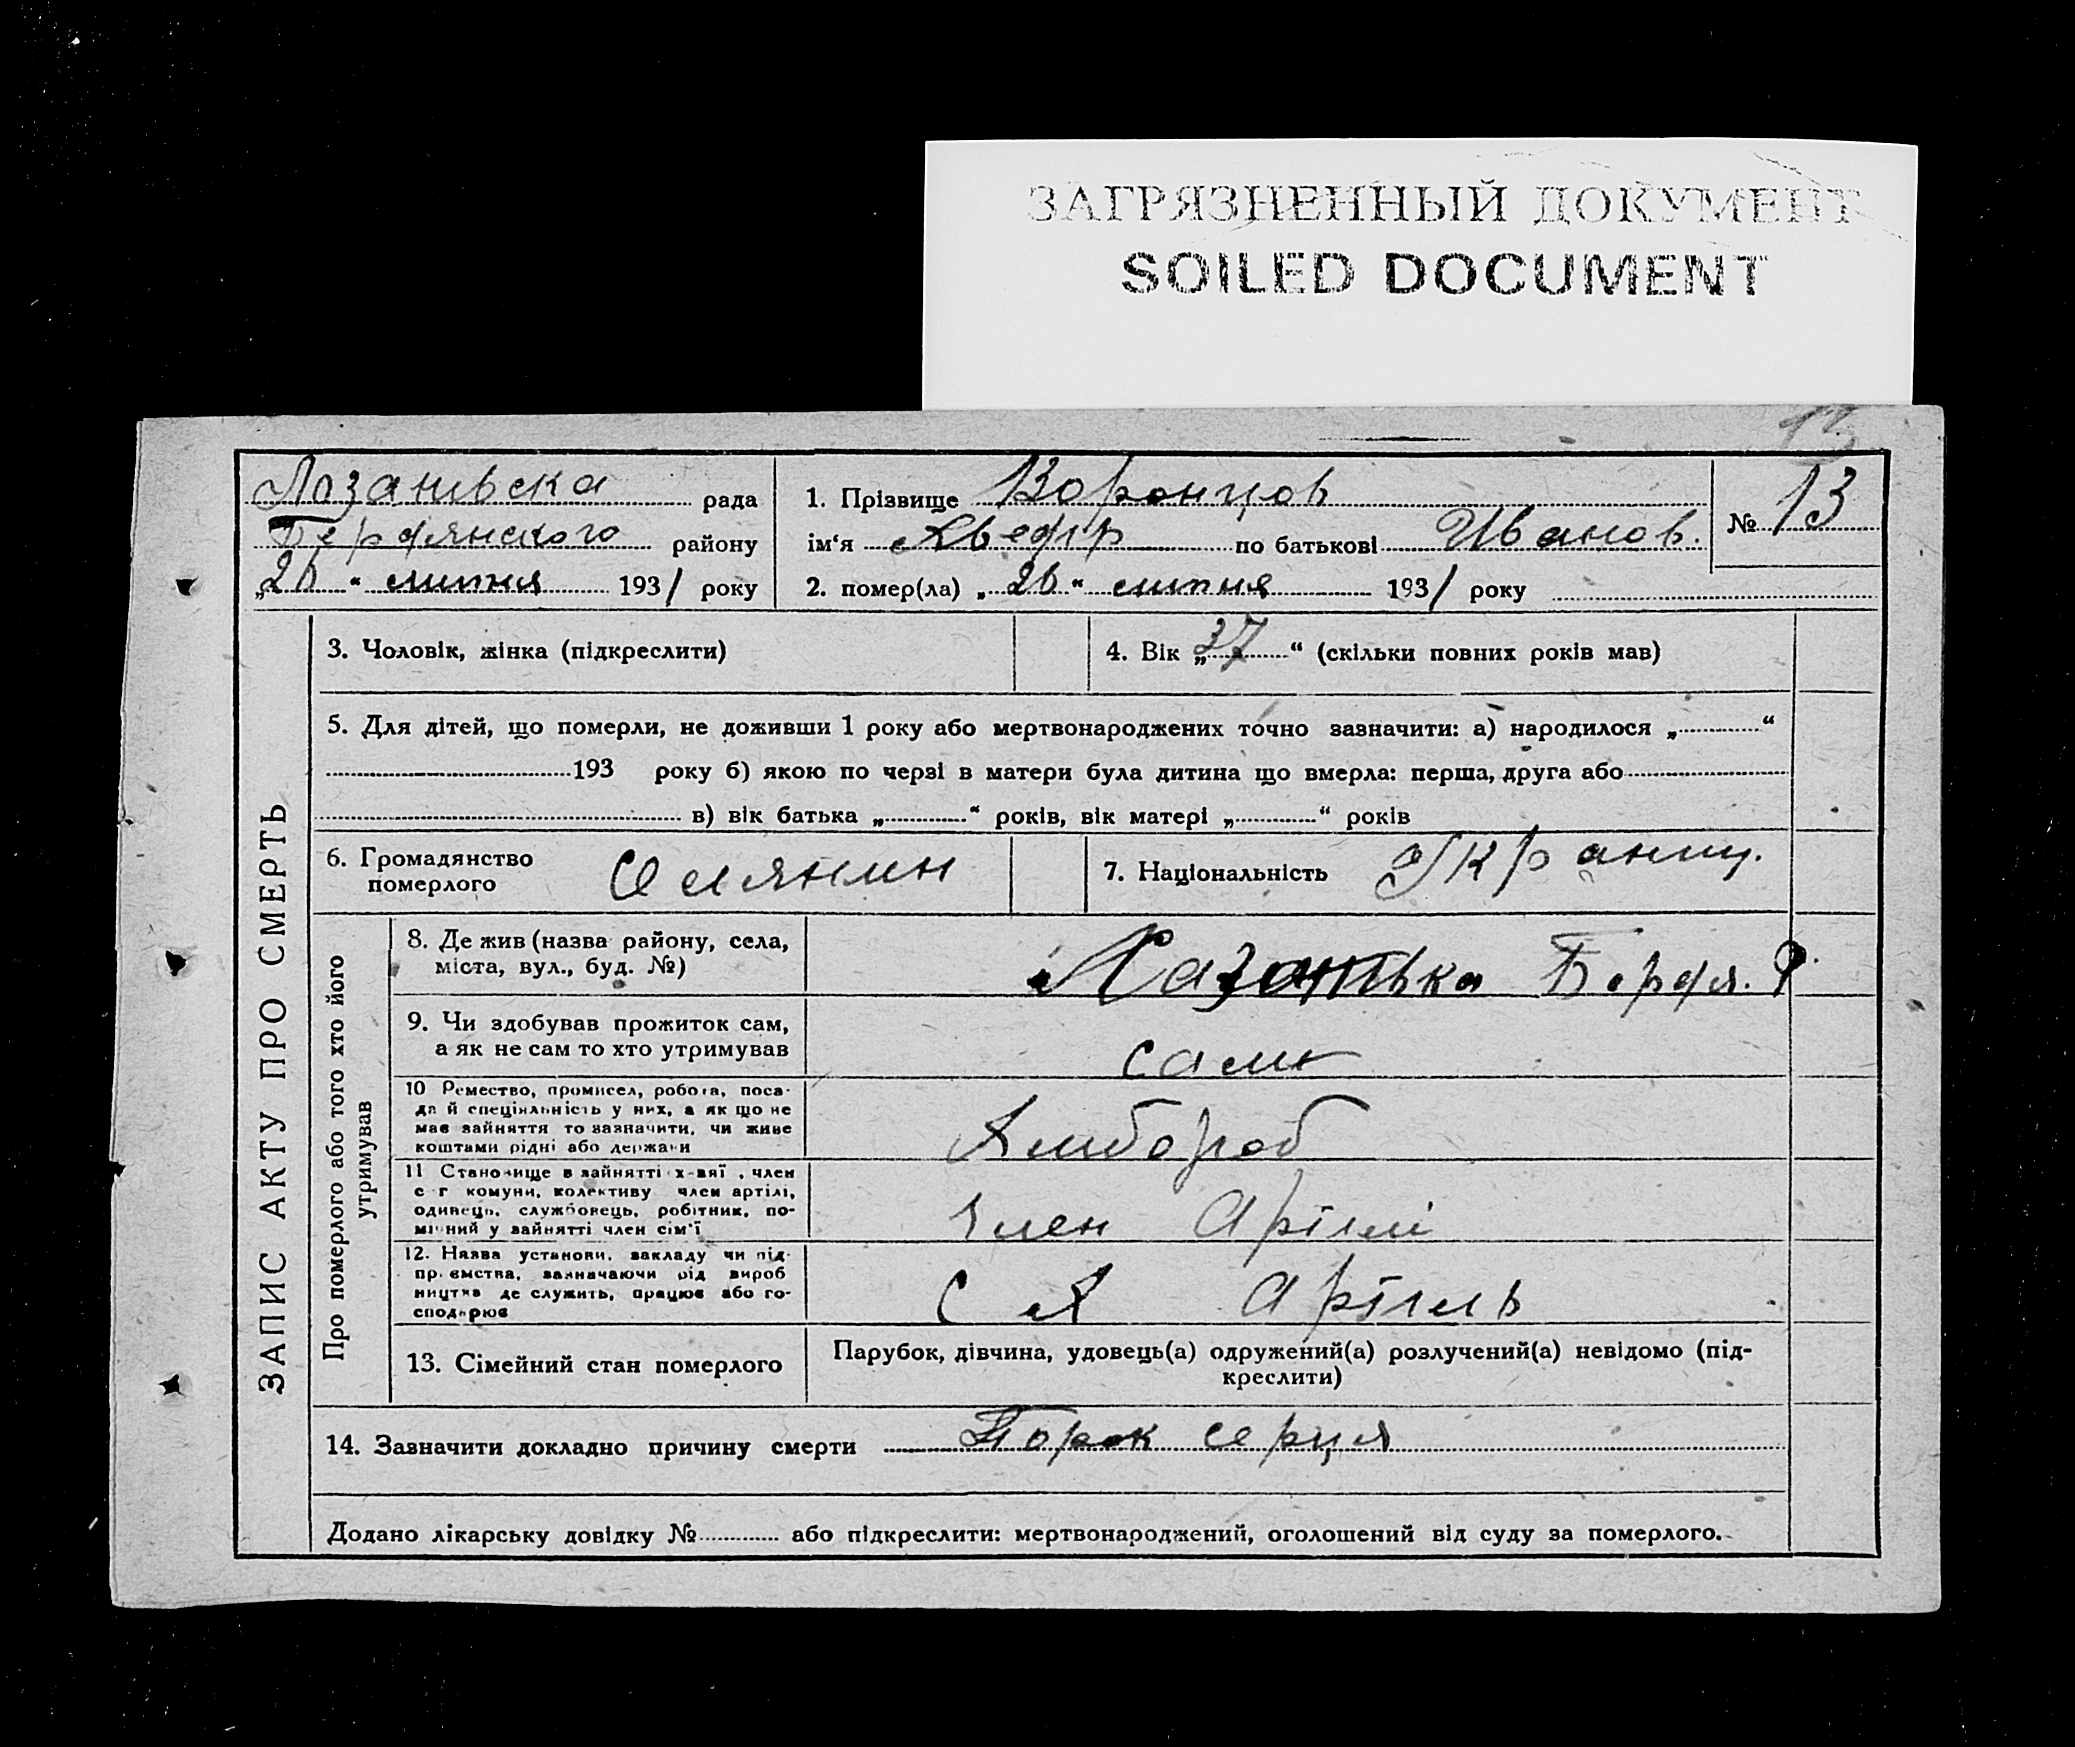 ЗАГРЯЗНЕННЫЙ ДОКУМЕНТ
SOILED DOCUMENT
13
рада
Бердянского району
„26“ липня 1931 року
1. Прізвище Воронцов
ім‘я по батькові Иванов.
2. помер(ла) „26“ липня 1931 року
№ 13
ЗАПИС АКТУ ПРО СМЕРТЬ
3. Чоловік, жінка (підкреслити)
4. Вік „37“ (скільки повних років мав)
5. Для дітей, що померли, не доживши 1 року або мертвонароджених точно зазначити: а) народилося „ “
193 року б) якою по черзі в матери була дитина що вмерла: перша, друга або
в) вік батька „ “ років, вік матері „ “ років
6. Громадянство
померлого
7. Національність
Про померлого або того хто його
утримував
8. Де жив (назва району, села,
міста, вул., буд. №)
Бердя. Р.
9. Чи здобував прожиток сам,
а як не сам то хто утримував
сам
10 Ремество, промисел, робота, поса-
да й спеціяльність у них, а як що не
має зайняття то зазначити, чи живе
коштами рідні або держави
11 Становище в зайнятті х-вяї, член
с-г комуни, колективу член артілі,
одинець, службовець, робітник, по-
мічний у зайнятті член сім'ї
Член Артілі
12. Назва установи, закладу чи під-
приємства, зазначаючи рід вироб
ництва де служить, працює або го-
сподарює
Артіль
13. Сімейний стан померлого
Парубок, дівчина, удовець(а) одружений(а) розлучений(а) невідомо (під-
креслити)
14. Зазначити докладно причину смерти Порок серця
Додано лікарську довідку № або підкреслити: мертвонароджений, оголошений від суду за померлого.